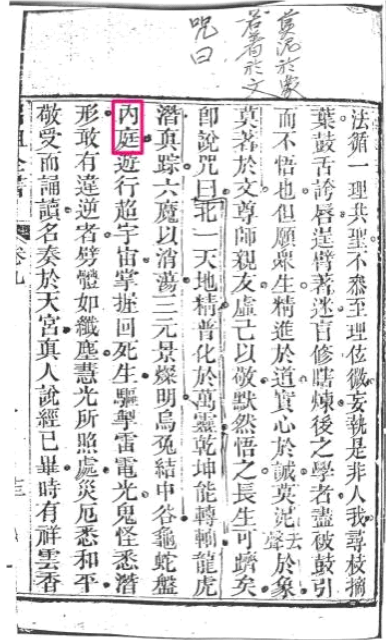 莫泥於象
若著於文
咒曰
法循一理共聖不叅至理位微妄執是非人我尋枝摘
葉鼓舌誇唇逞臂著迷盲修瞎煉後之學者盡破鼓引
而不悟也但願衆生精進於道實心於誠莫泥去聲於象
莫著於文尊師親友虛己以敬默然悟之長生可躋矣
卽說咒曰北一天地精普化於萬靈乾坤能轉輸龍虎
潛真踪六魔以消蕩三元景燦明烏兔結中谷龜蛇盤
內庭遊行超宇宙掌握回死生驅掣雷電光鬼怪悉潛
形敢有違逆者劈體如纖塵慧光所照處災厄悉和平
敬受而誦讀名奏於天宮真人說經已畢時有祥雲香
卷九